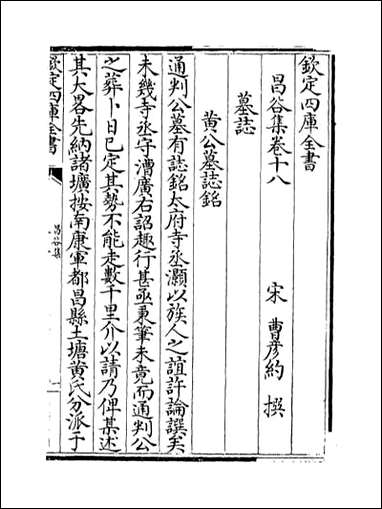 欽定四庫全書
昌谷集卷十八
宋 曹彥約 撰
墓誌
黃公墓誌銘
通判公墓有誌銘太府寺丞灝以族人之誼許論譔矣
未幾寺丞守漕廣右詔趣行甚亟秉筆未竟而通判公
之葬卜日已定其勢不能走數千里介以請乃俾某述
其大畧先納諸壙按南康軍都昌縣土塘黃氏分派于
欽定四庫全書
昌谷集